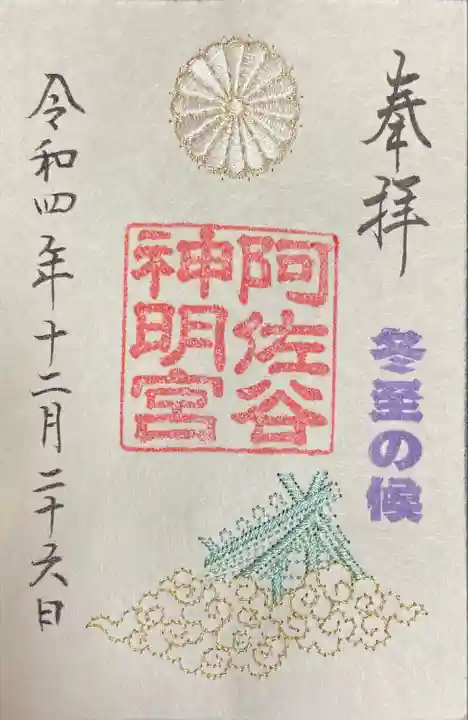 奉拝
冬至の候
阿佐谷
神明宮
令和四年十二月二十六日